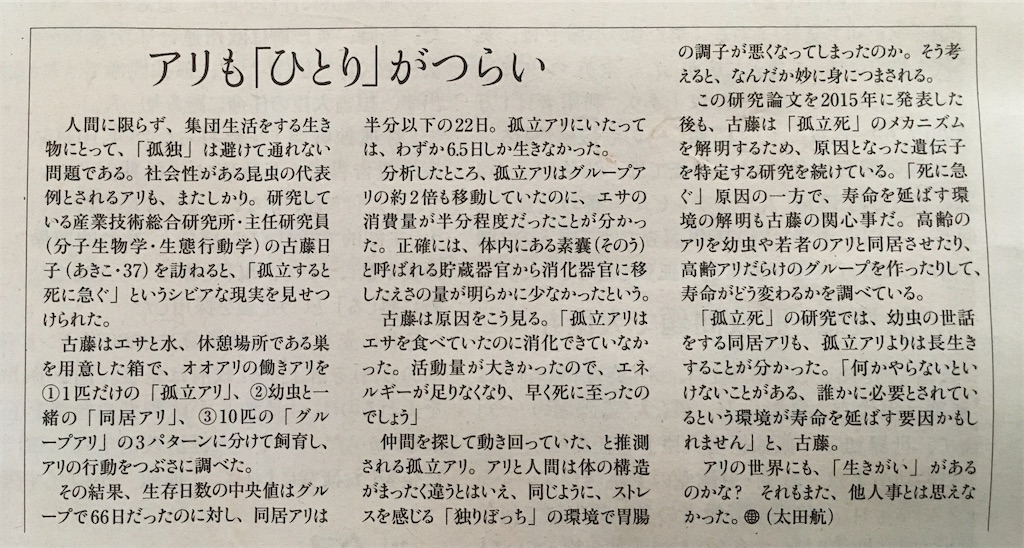 アリも「ひとり」がつらい
人間に限らず、集団生活をする生き
物にとって、「孤独」は避けて通れない
問題である。社会性がある昆虫の代表
例とされるアリも、またしかり。研究して
いる産業技術総合研究所・主任研究員
(分子生物学・生態行動学)の古藤日
子(あきこ・37)を訪ねると、「孤立すると
死に急ぐ」というシビアな現実を見せつ
けられた。
古藤はエサと水、休憩場所である巣
を用意した箱で、オオアリの働きアリを
①1匹だけの「孤立アリ」、②幼虫と一
緒の「同居アリ」、③10匹の「グル
ープアリ」の3パターンに分けて飼育し、
アリの行動をつぶさに調べた。
その結果、生存日数の中央値はグル
ープで66日だったのに対し、同居アリは
半分以下の22日。孤立アリにいたって
は、わずか6.5日しか生きなかった。
分析したところ、孤立アリはグループア
リの約2倍も移動していたのに、エサの
消費量が半分程度だったことが分かっ
た。正確には、体内にある素嚢(そのう)
と呼ばれる貯蔵器官から消化器官に移
したえさの量が明らかに少なかったという。
古藤は原因をこう見る。「孤立アリは
エサを食べていたのに消化できていなか
った。活動量が大きかったので、エネ
ルギーが足りなくなり、早く死に至ったの
でしょう」
仲間を探して動き回っていた、と推測
される孤立アリ。アリと人間は体の構造
がまったく違うとはいえ、同じように、ストレ
スを感じる「独りぼっち」の環境で胃腸
の調子が悪くなってしまったのか。そう考
えると、なんだか妙に身につまされる。
この研究論文を2015年に発表した
後も、古藤は「孤立死」のメカニズム
を解明するため、原因となった遺伝子
を特定する研究を続けている。「死に急
ぐ」原因の一方で、寿命を延ばす環
境の解明も古藤の関心事だ。高齢の
アリを幼虫や若者のアリと同居させたり、
高齢アリだらけのグループを作ったりして、
寿命がどう変わるかを調べている。
「孤立死」の研究では、幼虫の世話
をする同居アリも、孤立アリよりは長生き
することが分かった。「何かやらないと
いけないことがある、誰かに必要とされてい
るという環境が寿命を延ばす要因かもし
れません」と、古藤。
アリの世界にも、「生きがい」がある
のかな? それもまた、他人事とは思えな
かった。(太田航)